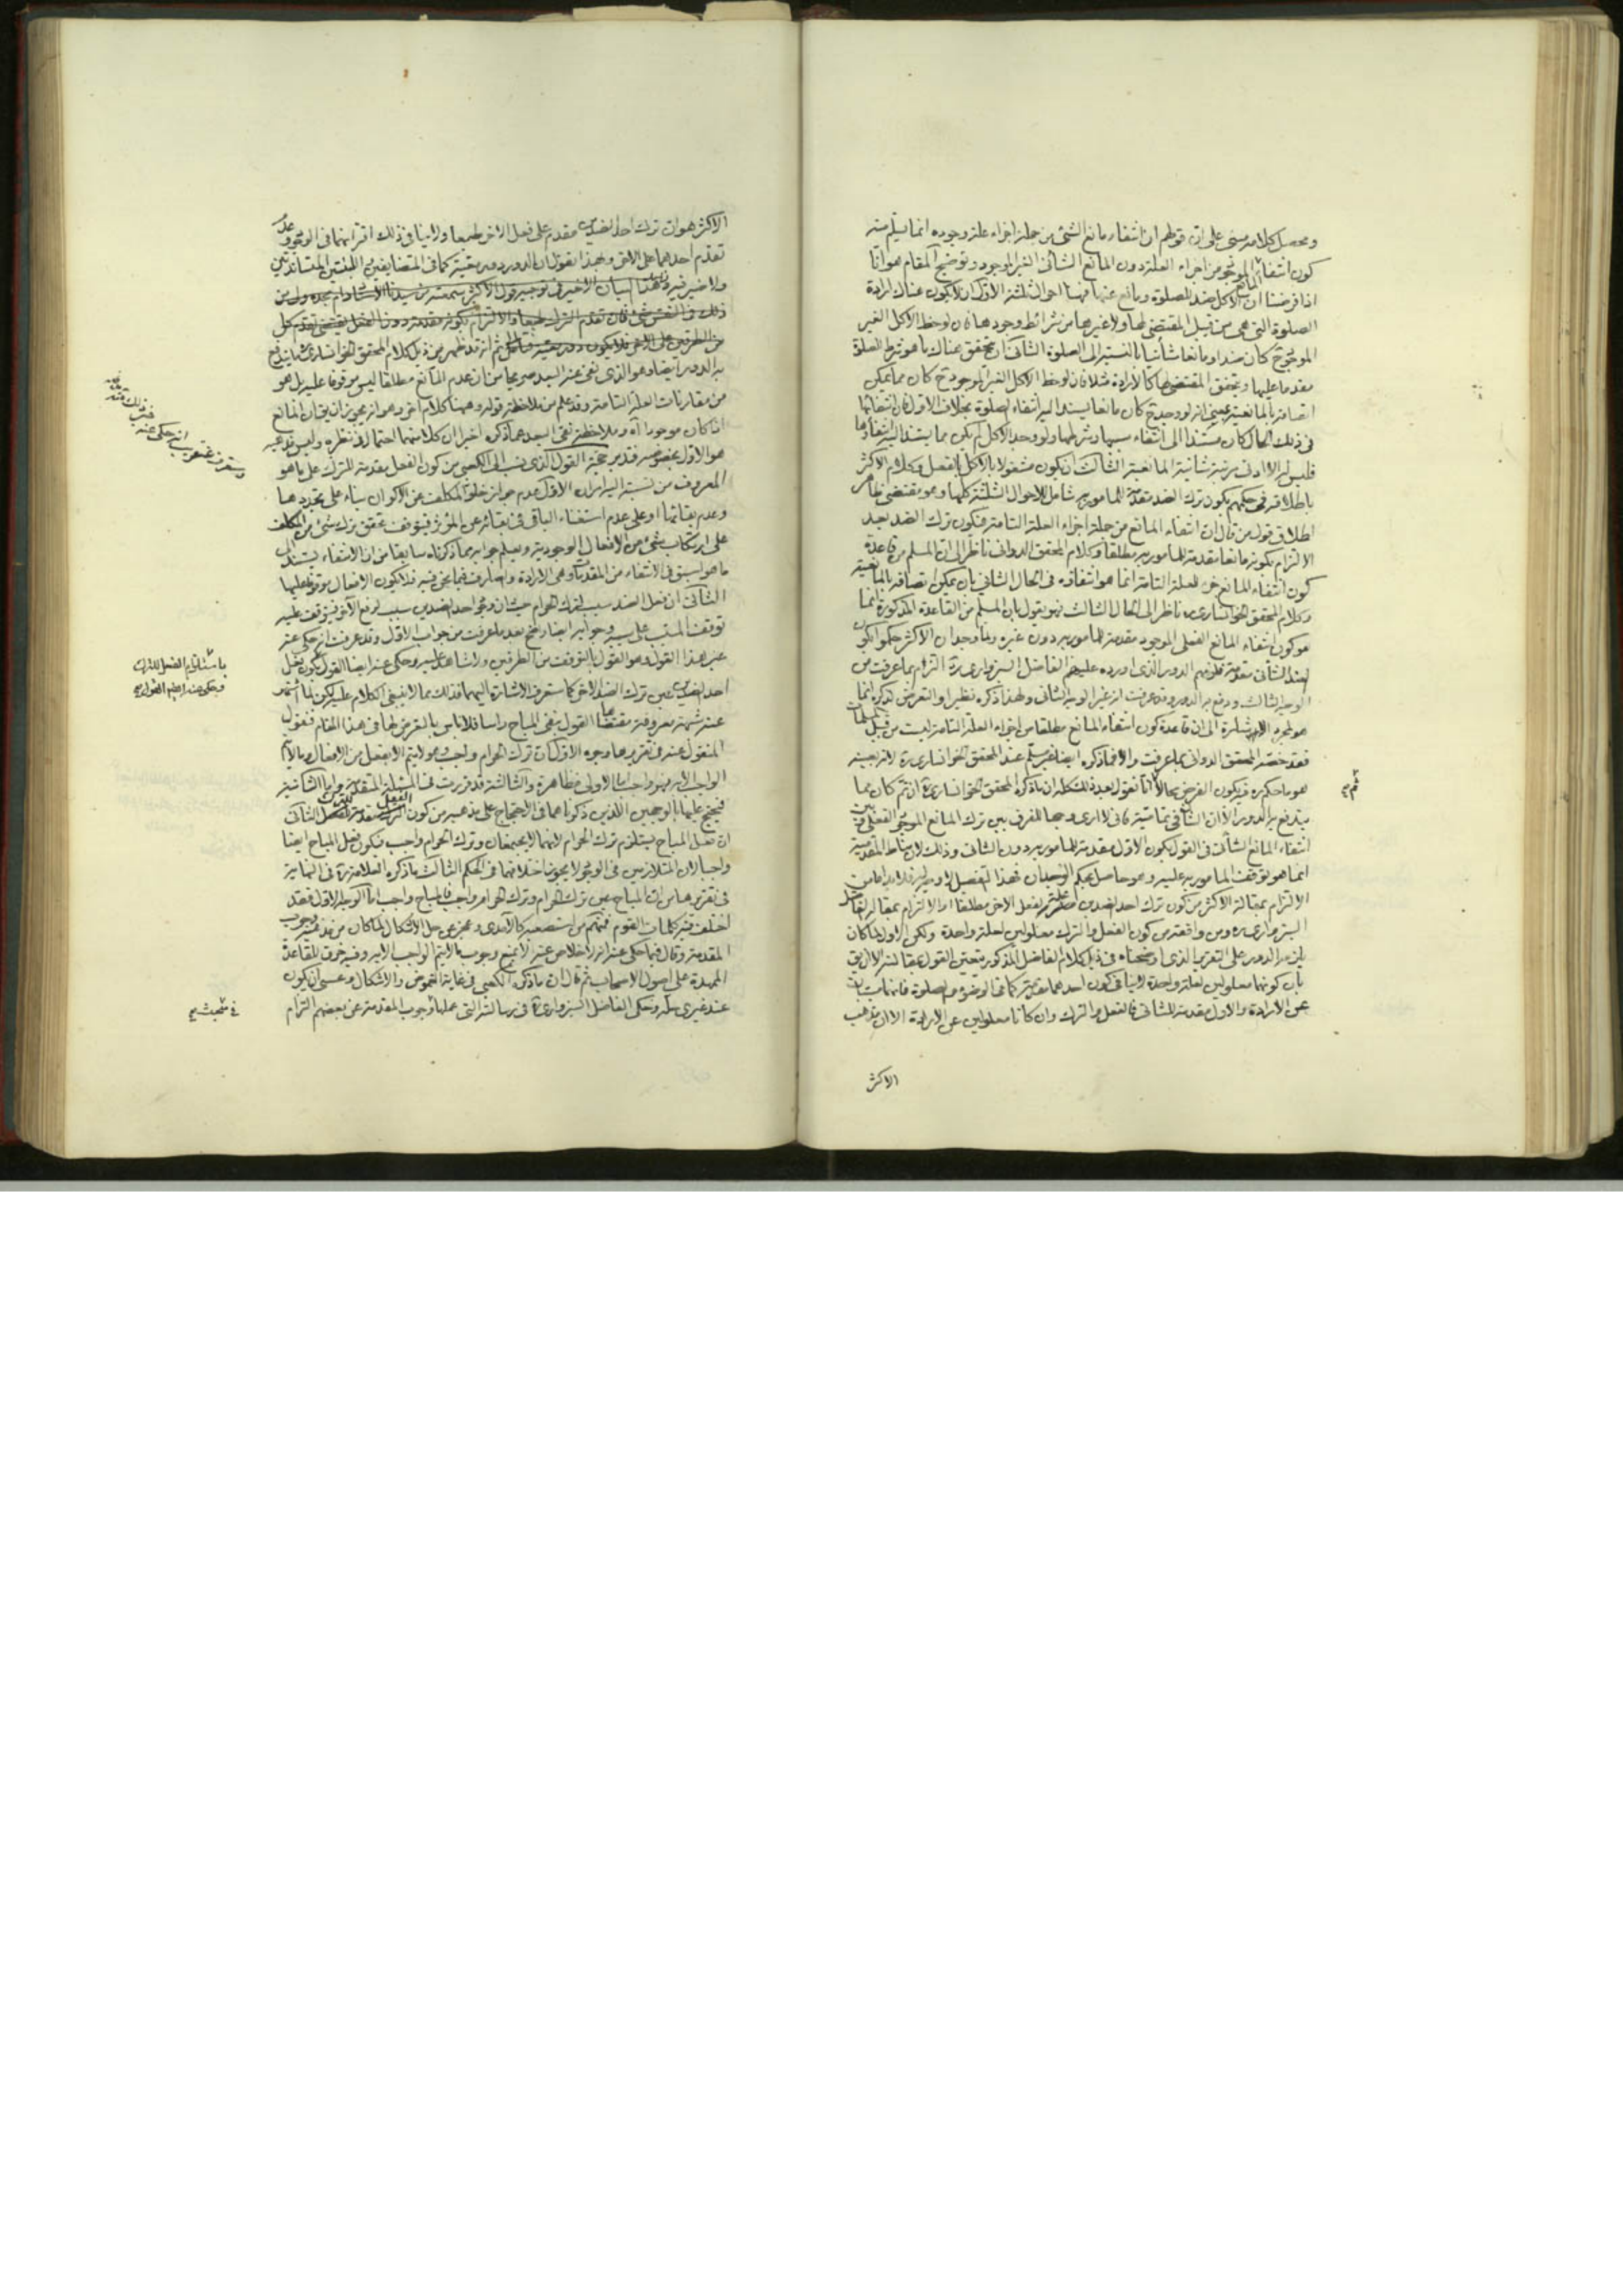 ومحصل كلامه مبنى على ان قولهم ان انتفاء مانع الشئ من جملة اجزاء علة وجوده انما يسلم منه
كون انتفاء المانع الموجود من اجزاء العلة دون المانع الشأنى الغير الموجود وتوضيح المقام هو انا
اذا فرضنا ان الاكل ضد للصلوة ومانع عنها فهنا احوال ثلثة الاول ان لا يكون هناك ارادة
الصلوة التى هى من قبيل المقتضى لها ولا غيرها من شرائط وجودها فان لوحظ الاكل الغير
الموجود ح كان ضدا ومانعا شأنيا بالنسبة الى الصلوة الثانى ان يتحقق هناك ما هو شرط الصلوة
مقدما عليها ويتحقق المقتضى لها كالارادة مثلا فان لوحظ الاكل الغير الموجود ح كان مما يمكن
اتصافه بالمانعية بمعنى انه لو وجد ح كان مانعا يستند اليه انتفاء الصلوة بخلاف الاول فان انتفائها
فى ذلك الحال كان مستندا الى انتفاء سببها وشرطها ولو وجد الاكل لم يكن مما يستند اليه انتفاؤها
فليس له الا ادنى مرتبة شأنية المانعية الثالث ان يكون مشغولا بالاكل بالفعل وكلام الاكثر
باطلاقه فى حكمهم بكون ترك الضد مقدمة للمامور به شامل للاحوال الثلثة كلها وهو مقتضى ظاهر
اطلاق قول من قال ان انتفاء المانع من جملة اجزاء العلة التامة فيكون ترك الضد بعد
الالتزام بكونه مانعا مقدمة للمامور به مطلقا وكلام المحقق الدوانى ناظر الى ان المسلم من قاعدة
كون انتفاء المانع جزء للعلة التامة انما هو انتفاؤه فى الحال الثانى بان يمكن اتصافه بالمانعية
وكلام المحقق الخوانسارى ره ناظر الى الحال الثالث فهو يقول بان المسلم من القاعدة المذكورة انما
هو كون انتفاء المانع الفعلى الموجود مقدمة للمامور به دون غيره وما وجد ان الاكثر حكموا بكون
الضد الشأنى مقدمة فلزمهم الدور الذى اورده عليهم الفاضل السبزوارى ره التزم بما عرفت من
الوجه الثالث ودفع به الدور وقد عرفت انه غير الوجه الثانى ولهذا ذكره نظيرا والتعرض لذكره انما
هو لمجرد الاشارة الى ان قاعدة كون انتفاء المانع مطلقا من اجزاء العلة التامة ليست من قبيل المسلمات
فقد خصه المحقق الدوانى بما عرفت والا فما ذكره ايضا غير مسلم عند المحقق الخوانسارى ره لانه بعينه
هو ما حكم به فيكون الفرض محالا ثم انا نقول بعد ذلك كله ان ما ذكره المحقق الخوانسارى ره ان تم كان مما
يندفع به الدور الا ان الشأن فى تماميته فانى لا ارى وجها للفرق بين ترك المانع الموجود الفعلى وبين
انتفاء المانع الشأنى فى القول بكون الاول مقدمة للمامور به دون الثانى وذلك لان مناط المقدمية
انما هو توقف المامور به عليه وهو حاصل بحكم الوجدان فهذا التفصيل لا وجه له فلا بد اما من
الالتزام بمقالة الاكثر من كون ترك احد الضدين مقدمة لفعل الاخر مطلقا او الالتزام بمقالة الفاضل
السبزوارى ره ومن وافقه من كون الفعل والترك معلولين لعلة واحدة ولكن الاول لما كان
يلزمه الدور على التقرير الذى اوضحناه فى ذيل كلام الفاضل المذكور تعين القول بمقالته الا ان يق
بان كونهما معلولين لعلة واحدة لا ينافى كون احدهما مقدمة كما فى الوضوء والصلوة فانهما مسببان
عن الارادة والاول مقدمة للثانى فالفعل والترك وان كانا معلولين عن الارادة الا ان مذهب
الاكثر
ثم صح
الاكثر هو ان ترك احد الضدين مقدم على فعل الاخر طبعا ولا ينافى ذلك اقترانهما فى الوجود وعدم
تقدم احدهما على الاخر وبهذا نقول ان الدور دور معية كما فى المتضايفين واللبنتين المتساندتين
ولا ضير فيه وهذا البيان الاخير فى توجيه قول الاكثر سمعته من سيدنا الاستاد دام مجده ولى من
ذلك فى النفس شئ فان تقدم الترك طبعا والالتزام بكونه مقدمة دون الفعل يقتضى تقدم كل
من الطرفين على الاخر فلا يكون دور معية فتأمل ثم انه قد ظهر من ذيل كلام المحقق الخوانسارى ره ما يندفع
به الدور ايضا وهو الذى نفى عنه البعد صريحا من ان عدم المانع مطلقا ليس موقوفا عليه بل هو
من مقارنات العلة التامة وقد علم من ملاحظة قوله وههنا كلام اخر وهو انه يجوز ان يق ان المانع
اذا كان موجودا آه وملاحظة نفى البعد عما ذكره اخيرا ان كلا منهما احتمال فى نظره وليس مذهبه
هو الاول بخصوصه فتدبر حجة القول الذى نسب الى الكعبى من كون الفعل مقدمة للترك على ما هو
المعروف من نسبته اليه امران الاول عدم جواز خلو المكلف عن الاكوان بناء على تجددها
وعدم بقائها او على عدم استغناء الباقى فى بقائه عن المؤثر فيتوقف تحقق ترك شئ من المكلف
على ارتكاب شئ من الافعال الوجودية ويعلم جوابه مما ذكرناه سابقا من ان الانتفاء يستند الى
ما هو اسبق فى الانتفاء من المقدمات وهى الارادة والصارف فيما نحن فيه فلا يكون الافعال موقوفا عليها
الثانى ان فعل الضد سبب لترك الحرام حيث ان وجود احد الضدين سبب لرفع الاخر فيتوقف عليه
توقف المسبب على سببه وجوابه ايضا واضح بعد ما عرفت من جواب الاول وقد عرفت انه حكى عنه
غير هذا القول وهو القول بالتوقف من الطرفين ولا شاهد عليه وحكى عنه ايضا القول بكون فعل
احد الضدين عين ترك الضد الاخر كما ستعرف الاشارة اليهما فذلك مما لا ينبغى الكلام عليه لكن لما اشتهر
عنه شبهة معروفة مقتضاها القول بنفى المباح راسا فلا باس بالتعرض لها فى هذا المقام فنقول
المنقول عنه فى تقريرها وجوه الاول ان ترك الحرام واجب وهو لا يتم الا بفعل من الافعال وما لا يتم
الواجب الا به فهو واجب اما الاولى فظاهرة والثالثة قد قررت فى المسئلة المتقدمة واما الثانية
فيحتج عليها بالوجهين اللذين ذكرناهما فى الاحتجاج على مذهبه من كون الفعل مقدمة للترك الثانى
ان فعل المباح يستلزم ترك الحرام لانهما لا يجتمعان وترك الحرام واجب فيكون فعل المباح ايضا
واجبا لان المتلازمين فى الوجود لا يجوز اختلافهما فى الحكم الثالث ما ذكره العلامة ره فى النهاية
فى تقريرها من ان المباح عين ترك الحرام وترك الحرام واجب فالمباح واجب اما الوجه الاول فقد
اختلف فيه كلمات القوم فمنهم من استصعبه كالآمدى وعجز عن حل الاشكال لما كان من مذهبه وجوب
المقدمة وقال فيما حكى عنه انه لا خلاص عنه الا بمنع وجوب ما لا يتم الواجب الا به وفيه خرق للقاعدة
الممهدة على اصول الاصحاب ثم قال ان ما ذكره الكعبى فى غاية الغموض والاشكال وعسى ان يكون
عند غيرى حله وحكى الفاضل السبزوارى ره فى رسالته التى عملها لوجوب المقدمة عن بعضهم التزام
باستلزام الفعل للترك